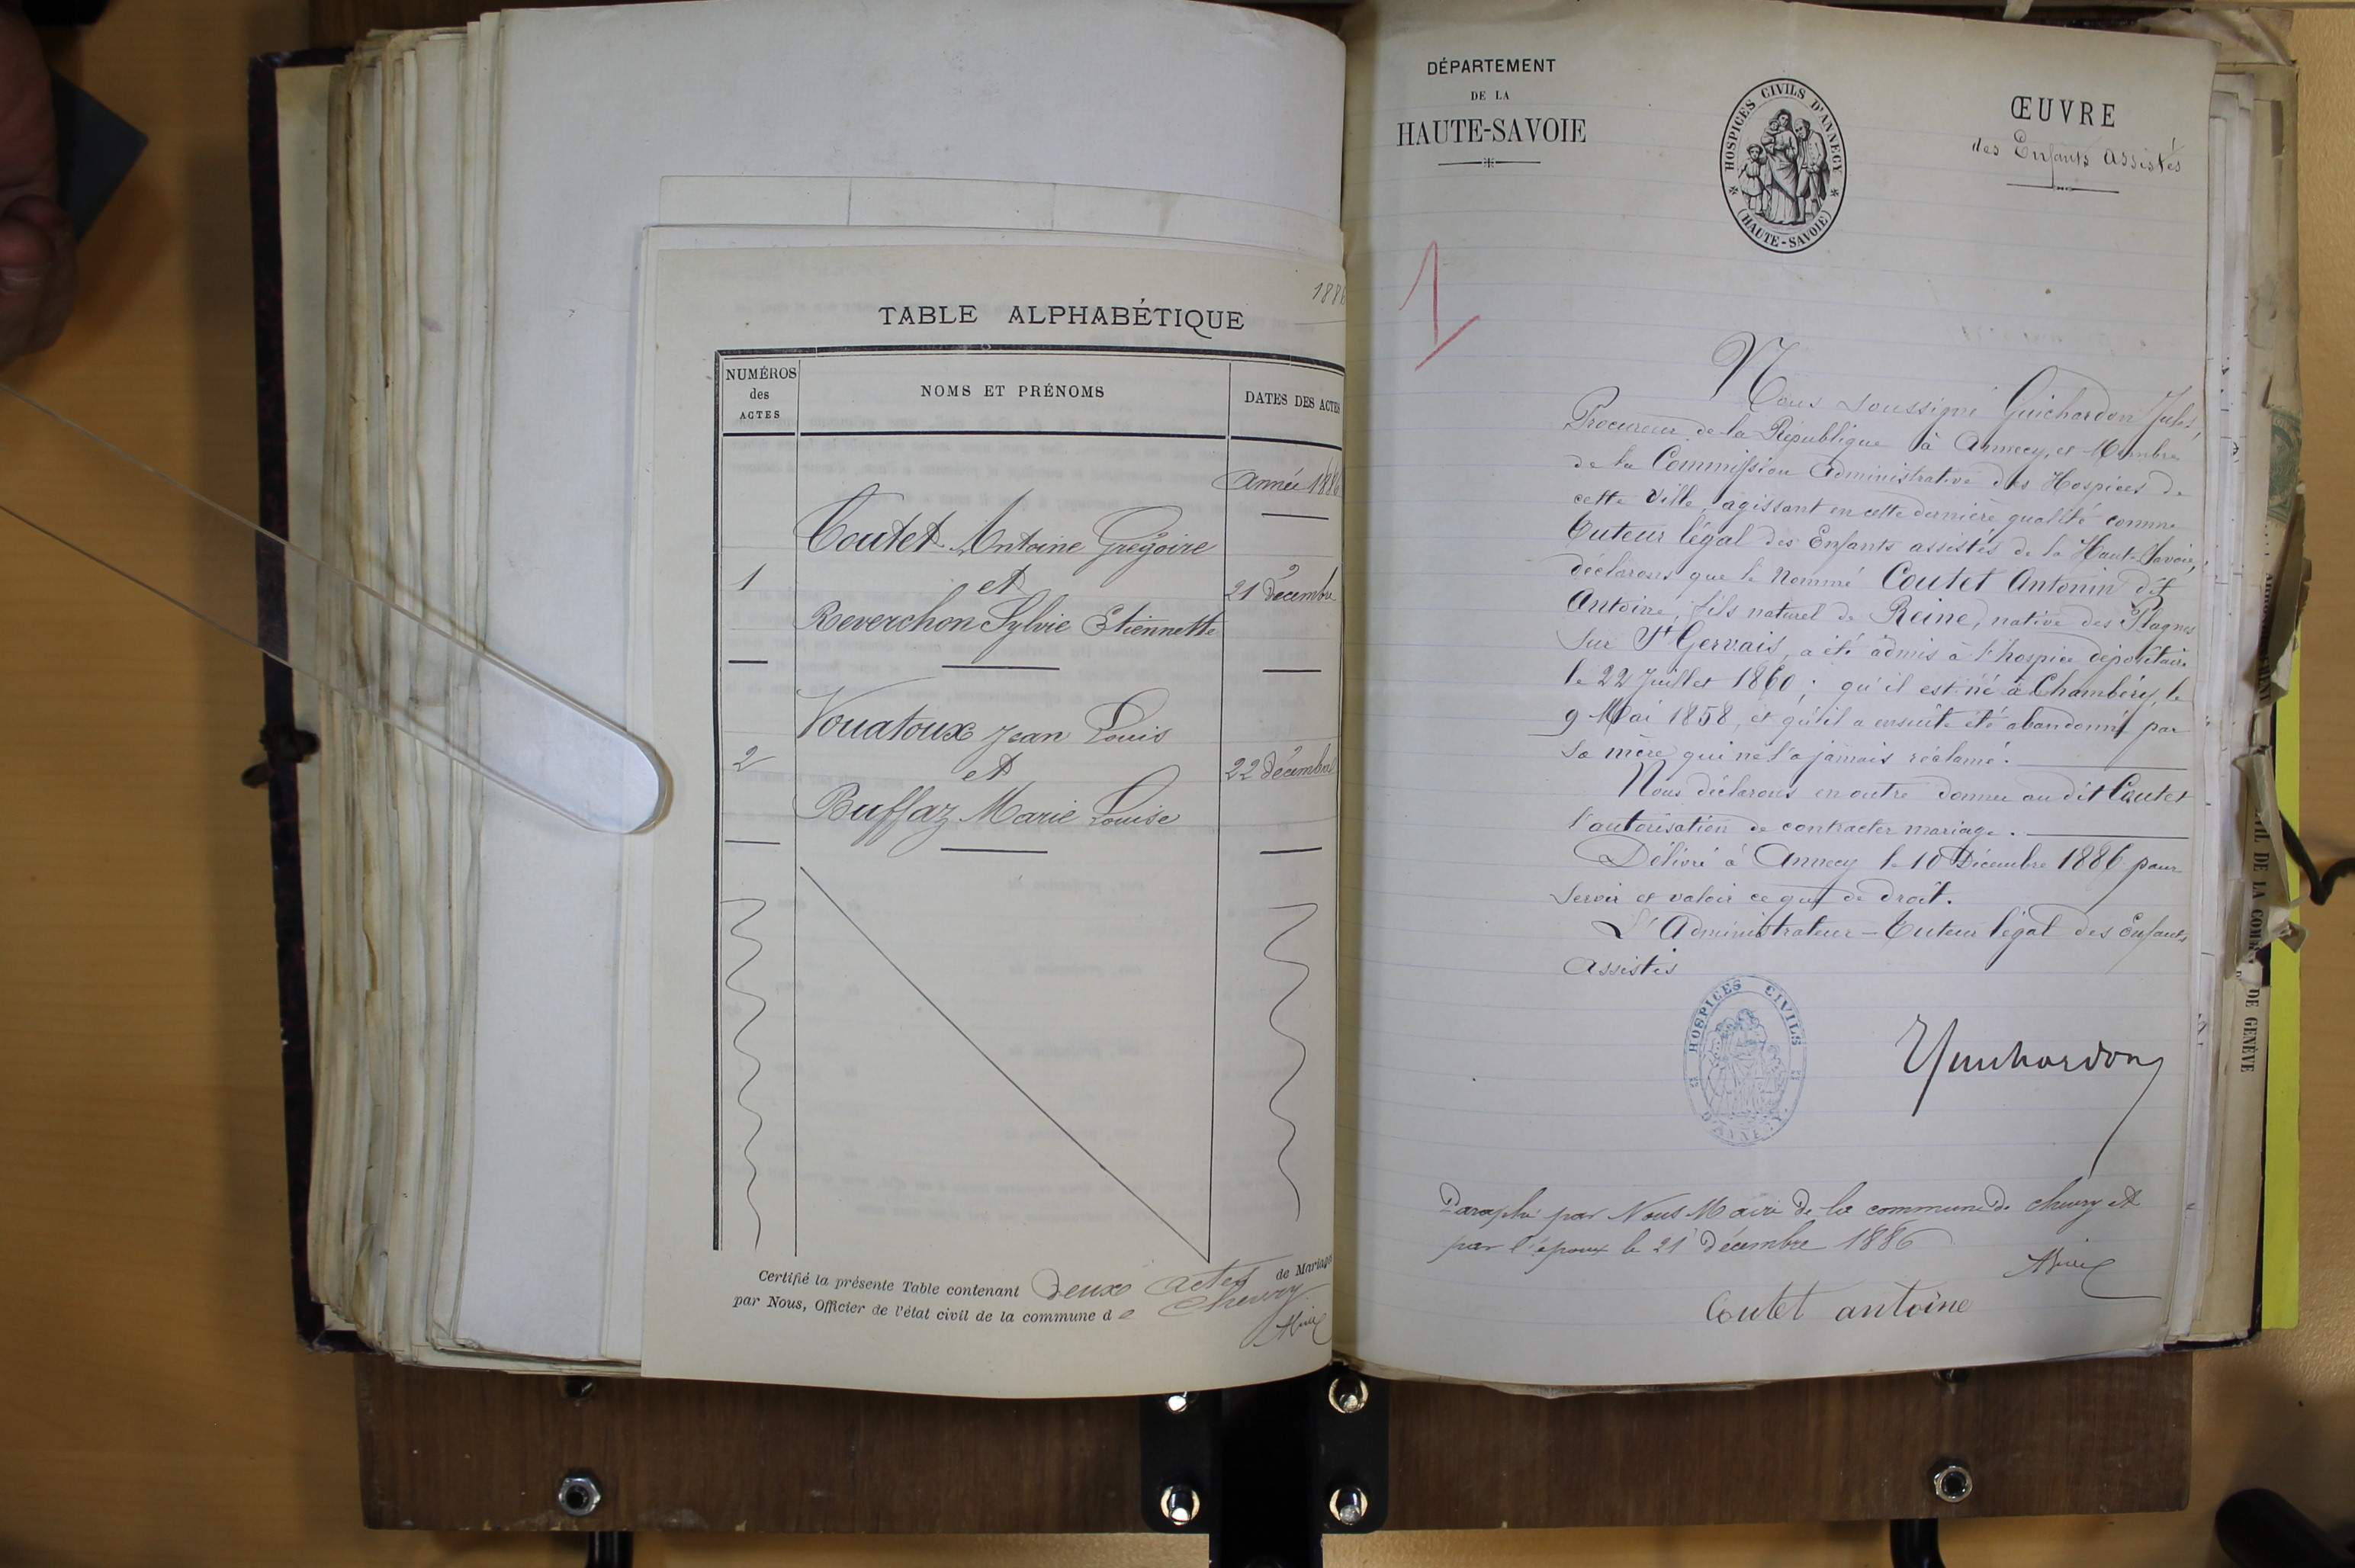 1886
TABLE ALPHABÉTIQUE
NUMÉROS
des
ACTES
NOMS ET PRÉNOMS
DATES DES ACTES
année 1886
Coutet Antoine Grégoire
1
et
21 Décembre
Reverchon Sylvie Etiennette
Vouatoux Jean Louis
2
et
22 Décembre
Buffaz Marie Louise
Certifié la présente Table contenant Deux actes de Mariage
par Nous, Officier de l'état civil de la commune de Chevry
DÉPARTEMENT
DE LA
HAUTE-SAVOIE
HOSPICES CIVILS D'ANNECY
(HAUTE-SAVOIE)
ŒUVRE
des Enfants Assistés
1
Nous soussigné Guichardon Jules,
Procureur de la République à Annecy, et Membre
de la Commission administrative des Hospices de
cette Ville, agissant en cette dernière qualité comme
Tuteur légal des Enfants assistés de la Haute-Savoie,
déclarons que le nommé Coutet Antonin dit
Antoine, fils naturel de Reine, native des Plagnes
sur St Gervais, a été admis à l'hospice dépositaire
le 22 Juillet 1860 ; qu'il est né à Chambéry, le
9 Mai 1858, et qu'il a ensuite été abandonné par
sa mère qui ne l'a jamais réclamé.
Nous déclarons en outre donner au dit Coutet
l'autorisation de contracter mariage.
Délivré à Annecy le 10 Décembre 1886 pour
servir et valoir ce que de droit.
L'Administrateur-Tuteur légal des Enfants
Assistés
HOSPICES CIVILS
D'ANNECY
Guichardon
Paraphé par Nous Maire de la commune de Chevry et
par l'époux le 21 décembre 1886
Coutet antoine
DE LA
DE GENÈVE